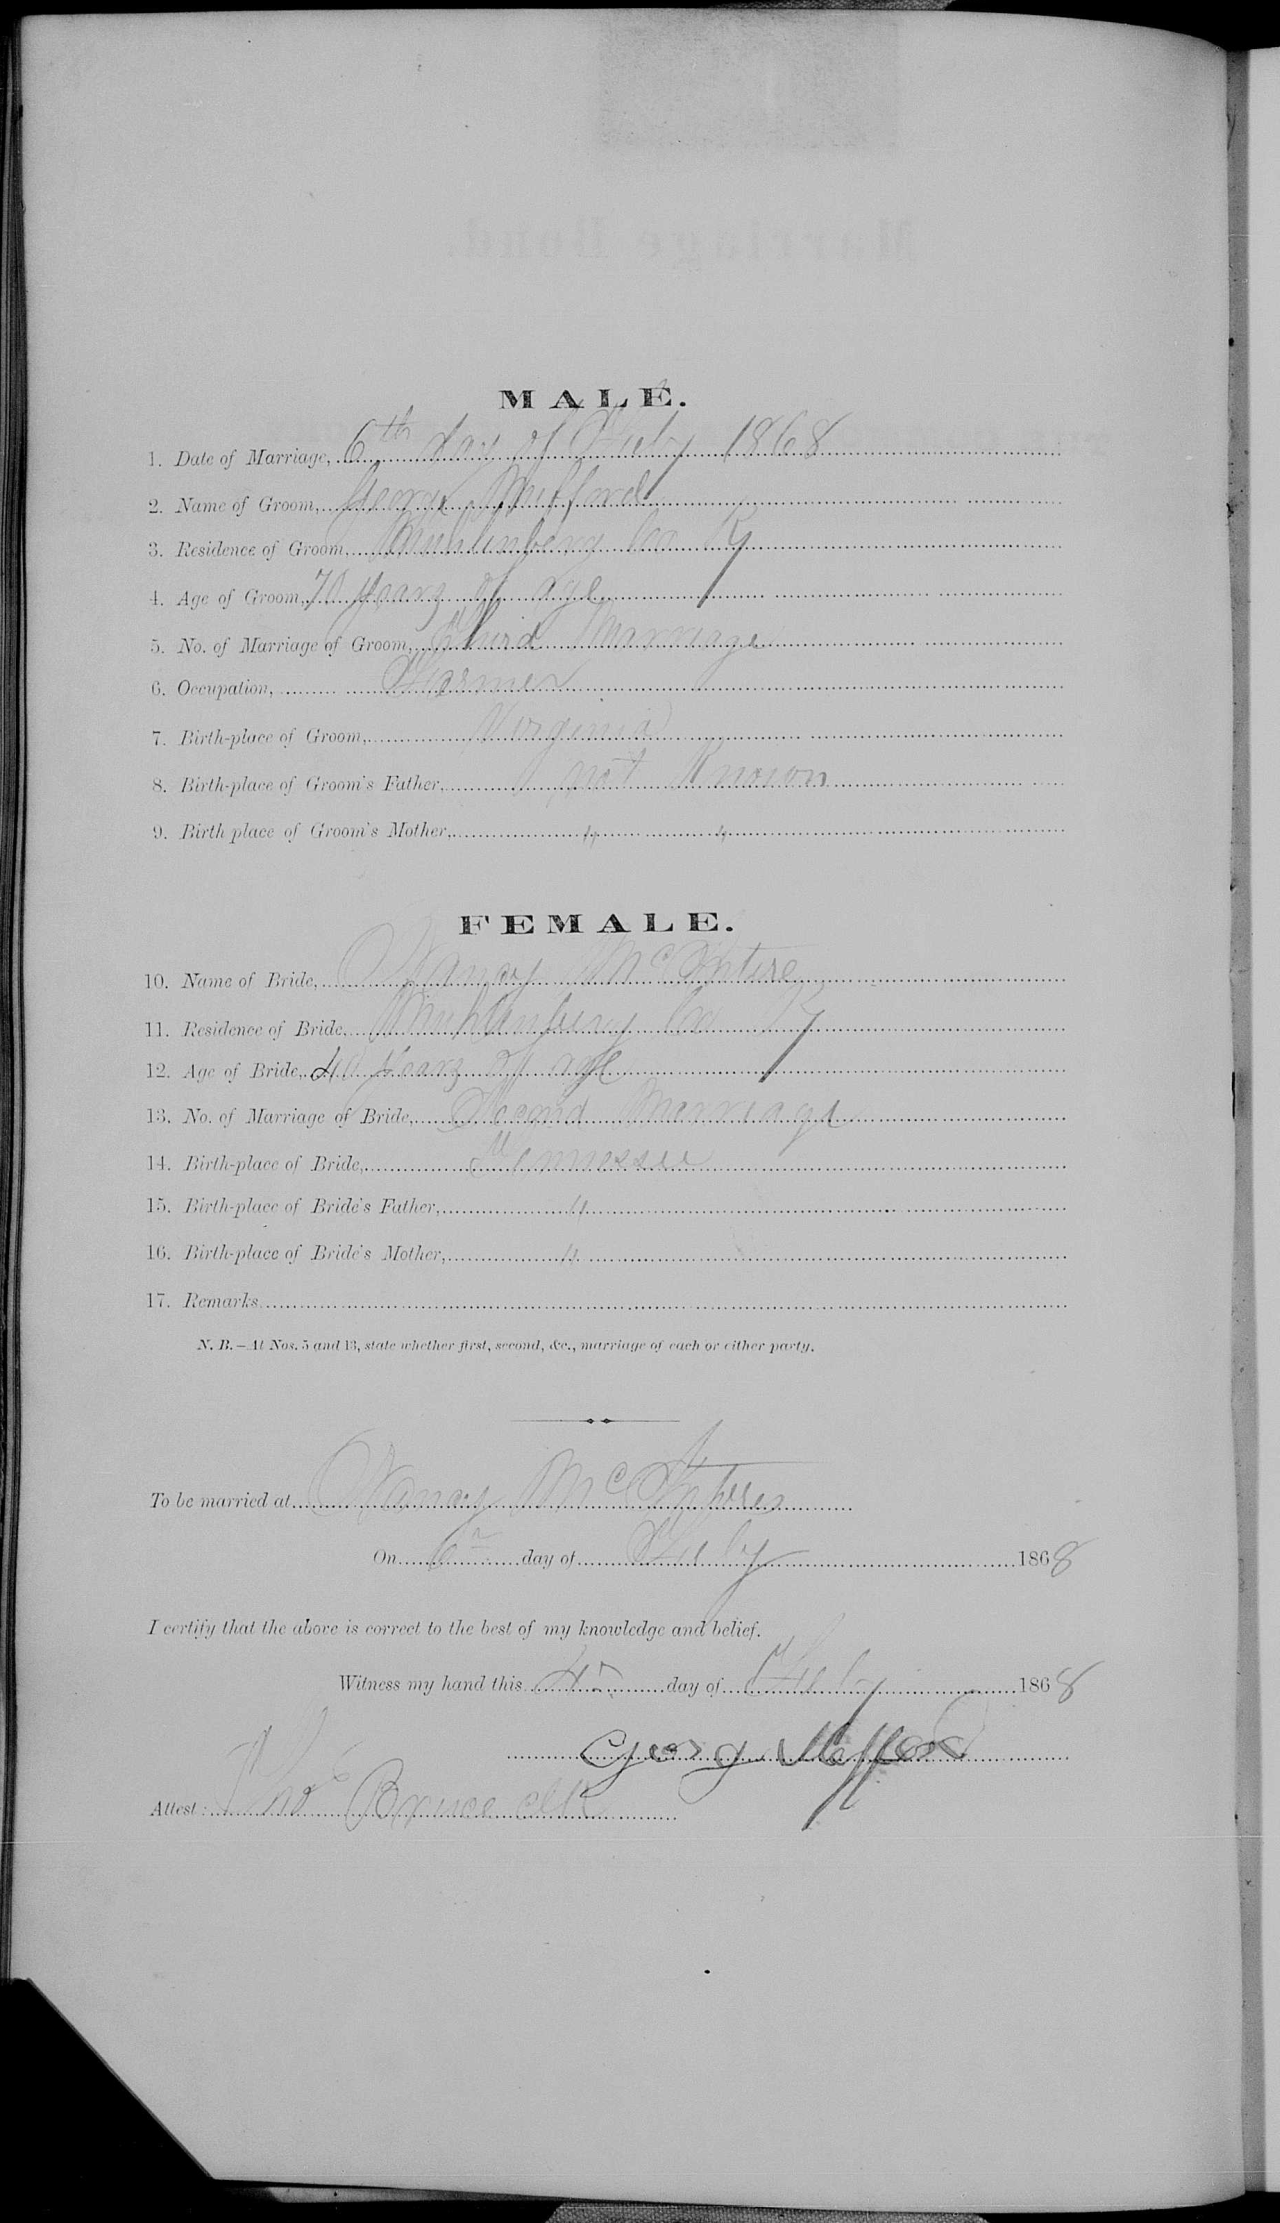 Marriage Bond.
MALE.
1. Date of Marriage, 6th day of Feby 1868
2. Name of Groom, George Mefford
3. Residence of Groom, Muhlenberg Co Ky
4. Age of Groom, 70 years of age
5. No. of Marriage of Groom, Third Marriage
6. Occupation, Farmer
7. Birth-place of Groom, Virginia
8. Birth-place of Groom's Father, not Known
9. Birth place of Groom's Mother, " "
FEMALE.
10. Name of Bride, Nancy McIntire
11. Residence of Bride, Muhlenberg Co Ky
12. Age of Bride, 40 years of age
13. No. of Marriage of Bride, Second Marriage
14. Birth-place of Bride, Tennessee
15. Birth-place of Bride's Father, "
16. Birth-place of Bride's Mother, "
17. Remarks
N. B.—At Nos. 5 and 13, state whether first, second, &c., marriage of each or either party.
To be married at Nancy McIntires
On 6th day of Feby 1868
I certify that the above is correct to the best of my knowledge and belief.
Witness my hand this 4th day of Feby 1868
Georg Mefford
Attest: Thos Bruce clk